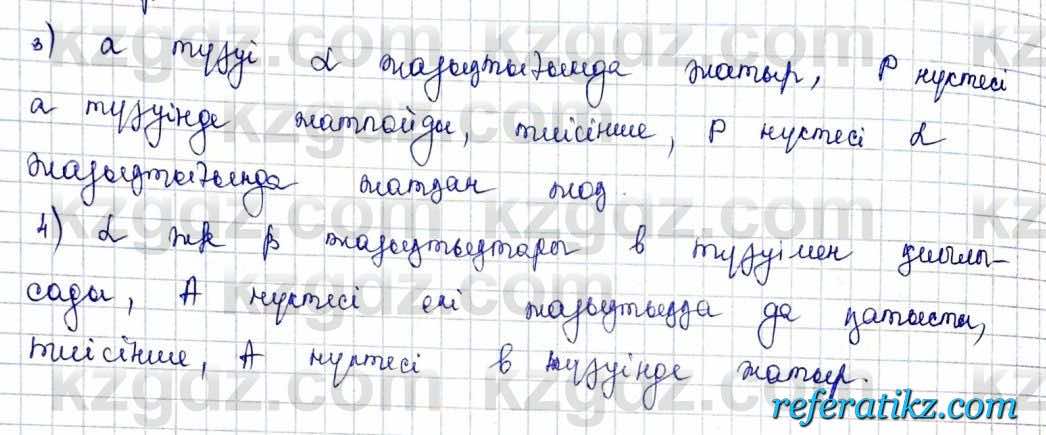 3) а түзуі α жазықтығында жатыр, Р нүктесі
а түзуінде жатпайды, тиісінше, Р нүктесі α
жазықтығында жатқан жоқ.
4) α жә β жазықтықтары в түзуімен қиылы-
сады, А нүктесі екі жазықтыққа да қатысты,
тиісінше, А нүктесі в түзуінде жатыр.
kzgdz.com
referatikz.com